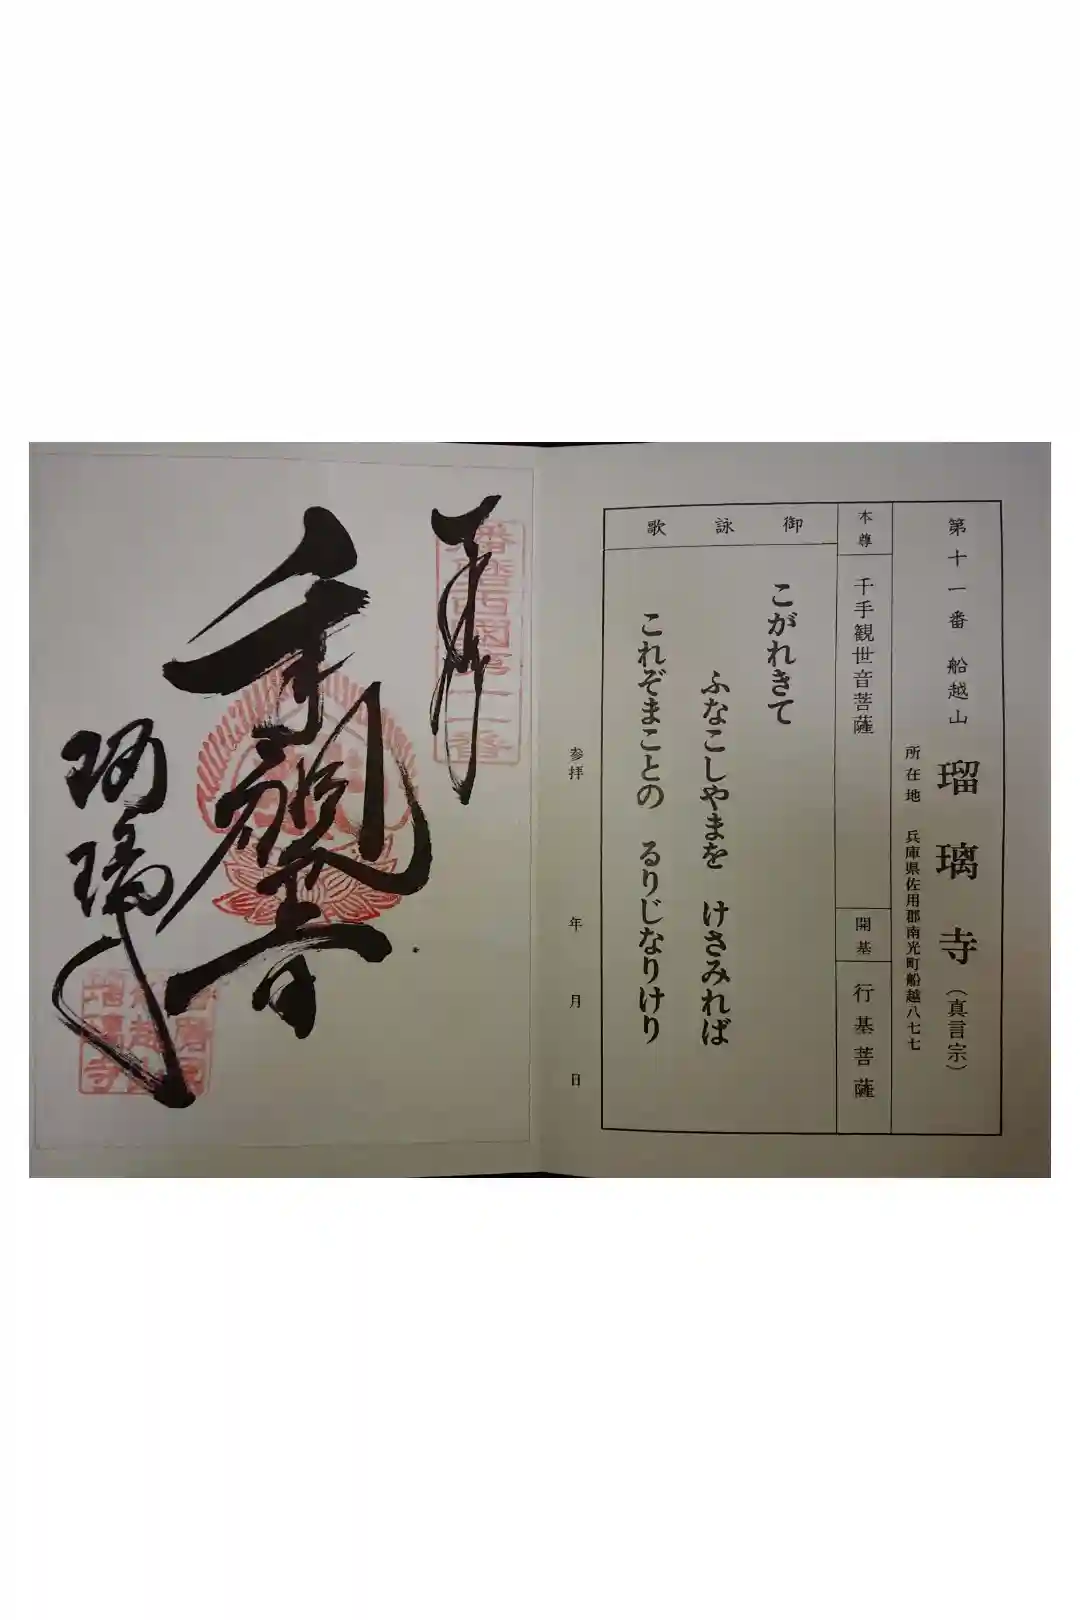 第十一番 船越山 瑠璃寺（真言宗）
所在地 兵庫県佐用郡南光町船越八七七
本尊 千手観世音菩薩
開基 行基菩薩
御詠歌
こがれきて
ふなこしやまを けさみれば
これぞまことの るりじなりけり
参拝 年 月 日
播磨西国第一一番
千手観音
瑠璃寺